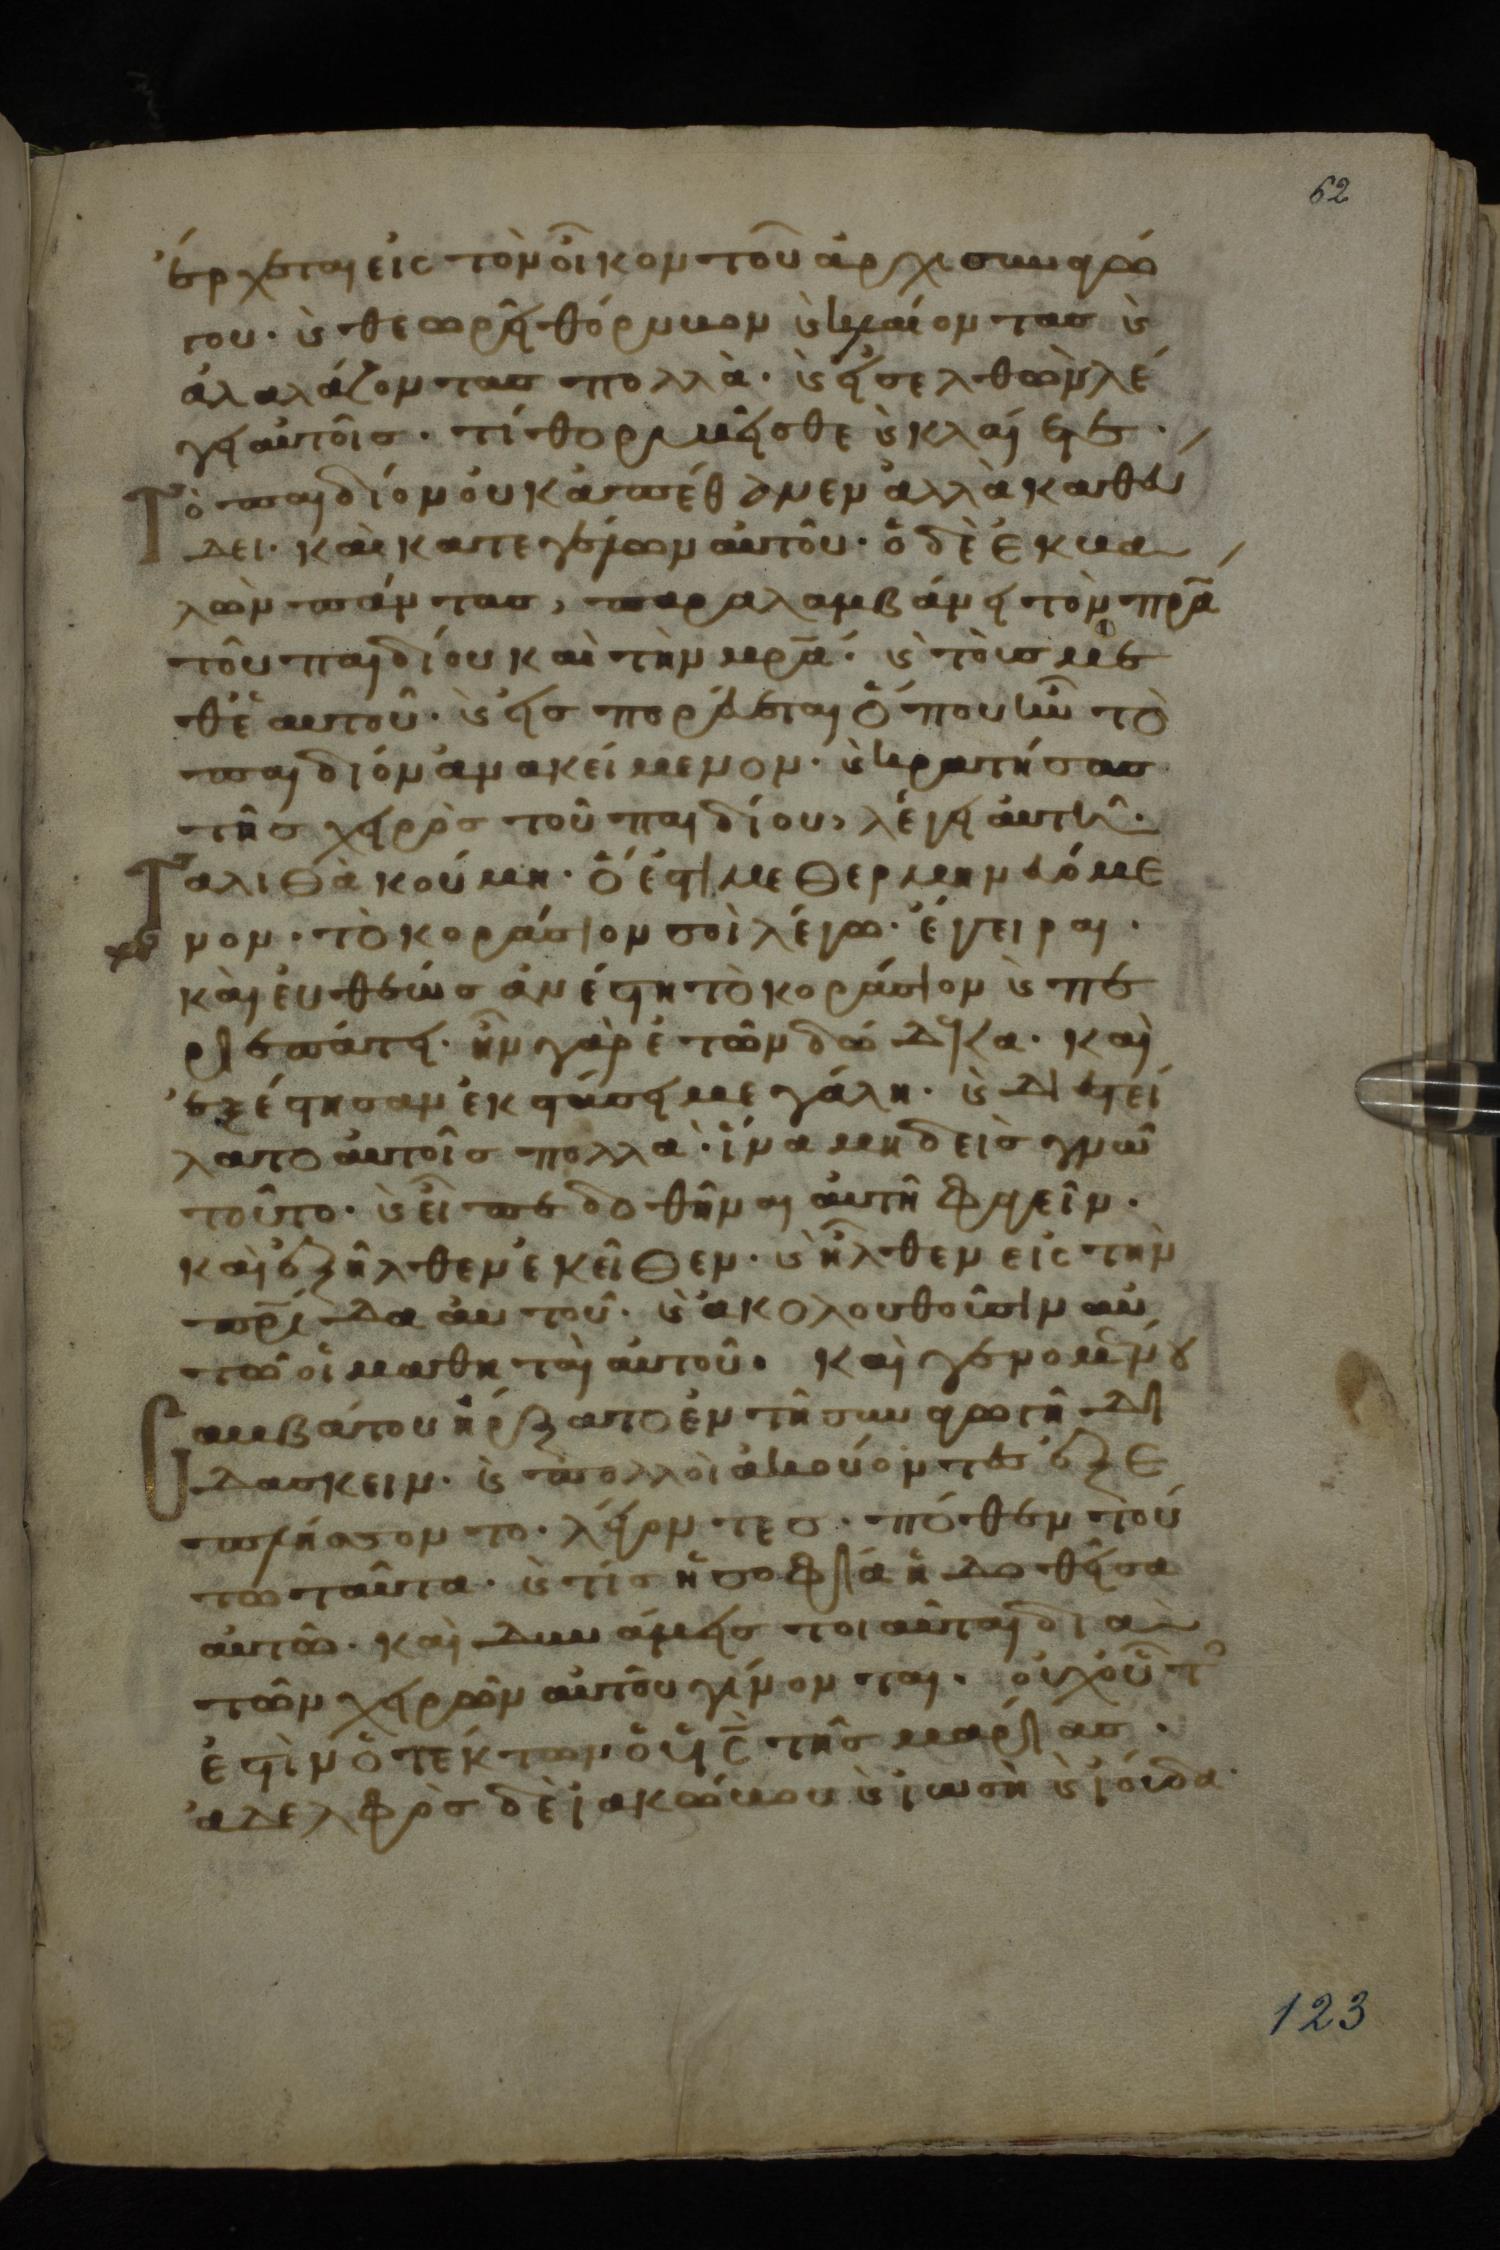 62
ἔρχεται εἰς τὸν οἶκον τοῦ ἀρχισυναγώ
γου· ϗ θεωρεῖ θόρυβον ϗ κλαίοντας ϗ
ἀλαλάζοντας πολλὰ· ϗ εἰσελθὼν λέ
γει αὐτοῖς· τί θορυβεῖσθε ϗ κλαίετε·
Τὸ παιδίον οὐκ ἀπέθανεν ἀλλὰ καθεύ
δει· καὶ κατεγέλων αὐτοῦ· ὁ δὲ ἐκβα
λὼν πάντας, παραλαμβάνει τὸν πρ̅α
τοῦ παιδίου καὶ τὴν μρ̅α· ϗ τοὺς με
θ᾽ ἑαυτοῦ· ϗ εἰσπορεύεται ὅπου ἦν τὸ
παιδίον ἀνακείμενον· ϗ κρατήσας
τῆς χειρὸς τοῦ παιδίου, λέγει αὐτῆ·
Ταλιθὰ κούμη· ὅ ἐστι μεθερμηνευόμε
νον· τὸ κοράσιον σοὶ λέγω· ἔγειραι·
καὶ εὐθέως ἀνέστη τὸ κοράσιον ϗ πε
ριεπάτει· ἦν γὰρ ἐτῶν δώδεκα· καὶ
ἐξέστησαν ἐκστάσει μεγάλη· ϗ διεστεί
λατο αὐτοῖς πολλὰ· ἵνα μηδεὶς γνῶ
τοῦτο· ϗ εἶπε δοθῆναι αὐτῆ φαγεῖν·
καὶ ἐξῆλθεν ἐκεῖθεν· ϗ ἦλθεν εἰς τὴν
πρ̅ίδα αὐτοῦ· ϗ ἀκολουθοῦσιν αὐ
τῶ οἱ μαθηταὶ αὐτοῦ· καὶ γενομένου
Σαμβάτου ἤρξατο ἐν τῆ συναγωγῆ δι
δασκειν· ϗ πολλοὶ ἀκούοντες ἐξε
πλήσσοντο· λέγοντες· πόθεν τού
τω ταῦτα· ϗ τίς ἡ σοφία ἡ δοθεῖσα
αὐτῶ· καὶ δυνάμεις τοιαῦται διὰ
τῶν χειρῶν αὐτοῦ γίνονται· οὐχ οὗτο
ἐστὶν ὁ τέκτων ὁ υἱ̅ς τῆς μαρίας·
ἀδελφὸς δὲ ἰακώβου ϗ ἰωσῆ ϗ ἰούδα·
123